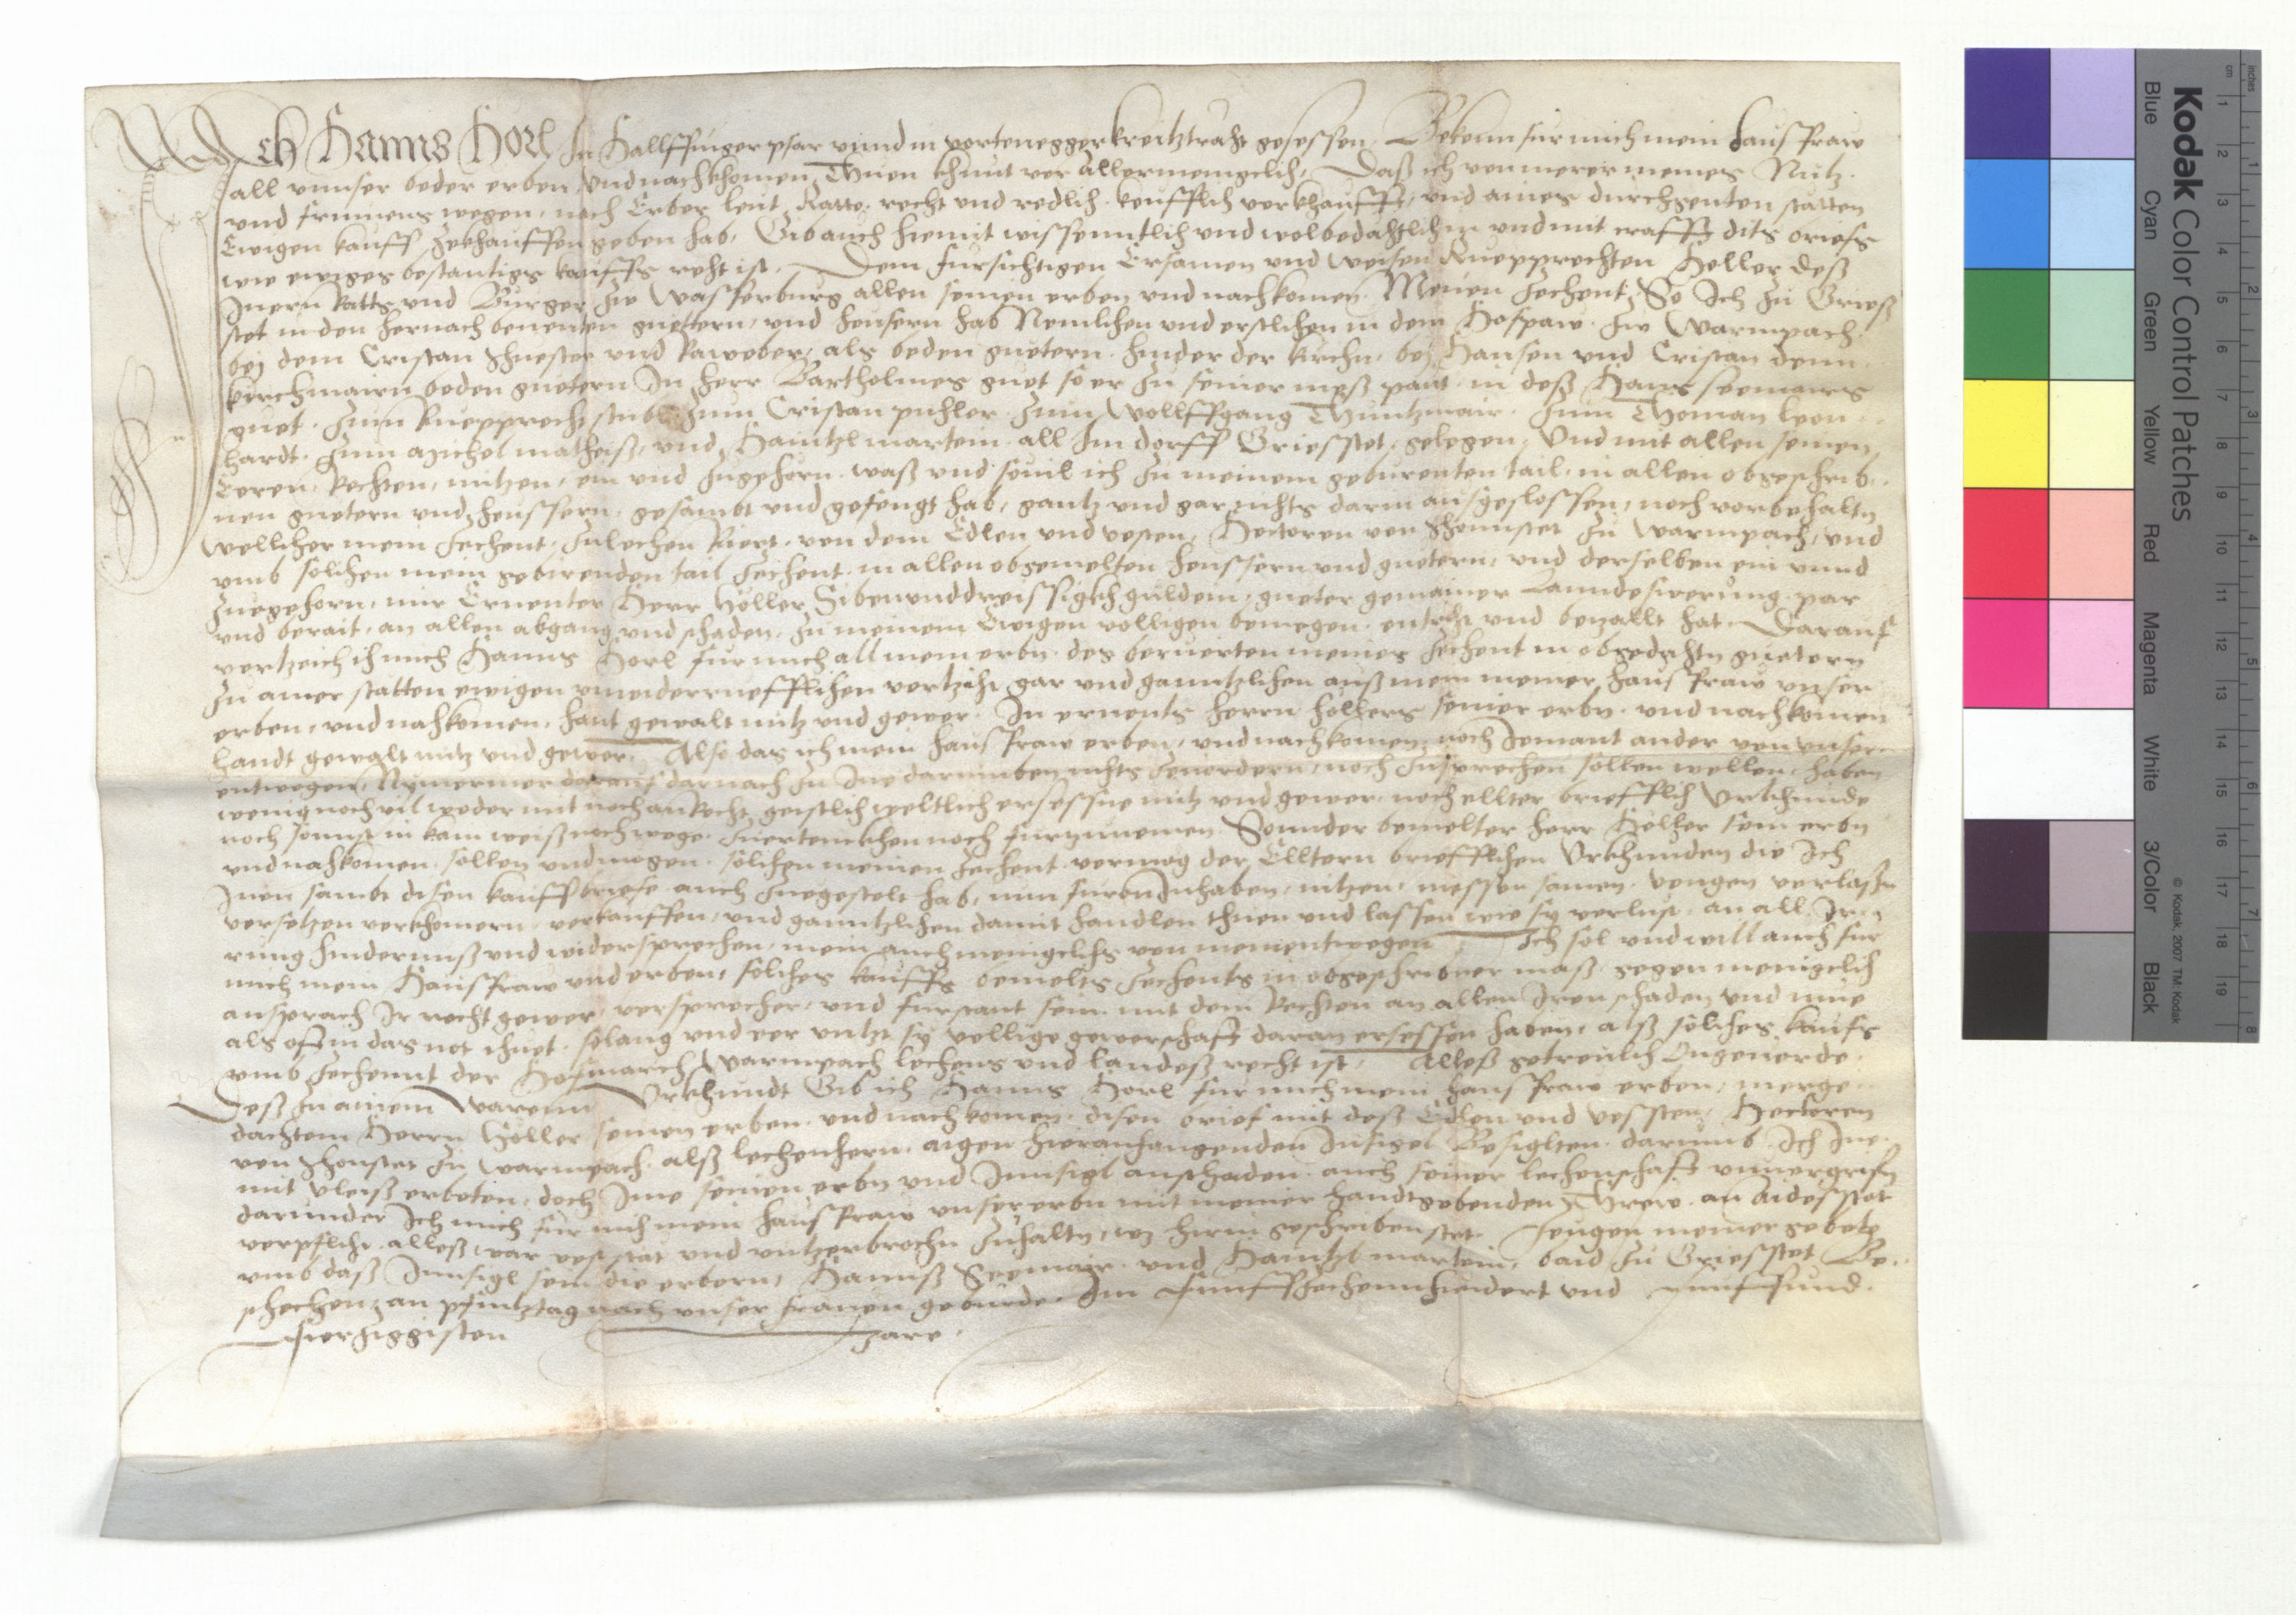 Ich Hanns Horl In Hallffinger pfar vnnd in vorteneggerkreitztracht gesessen, Bekenn fur mich mein hausfraw
all vnnser beder erben vnd nachkhomen, Thuen khunt vor allermenigclich, Daß ich von merer meines Nutz
vnd frumens wegen, nach Erber leut Ratte, recht vnd redlich keufflich verkhaufft, vnd aines durchgenten statten
Ewigen kauff zekhauffen geben hab, Gib auch hiemit wissenntlich vnd wolbedachtlich in vnd mit crafft dits briefs
wie ewiges bestantigs kauffs recht ist. Dem fursichtigen Ersamen vnd weisen Ruepprechten Heller deß
Innern Ratts vnd Burger zu Wasserburg allen seinen erben vnd nachkomen. Meinen zechent, So Ich zu Grieß
stet in den hernach benenten guettern, vnd heusern hab Nemlichen vnd erstlichen in dem Hofpaw zw Warmpach
bej dem Cristan Schuester vnd Raweber, als beden guetern hinder der kirchn, bej Hansen vnd Cristan denn
kirchmairn beden guetern In Herr Bartholmes guet so er zu seiner meß paut in deß Hans seemairs
guet. Zum Ruepprecht stubn zum Cristan puhler zum Wollffgang Thuntzmair. Zum Thoman leon
hardt. Zum Michel matheiß, vnd Haintzl martein all Im dorff Griesstet gelegen. Vnd mit allen seinen
Eeren, Rechten, nutzen, ein vnd zugehorn waß vnd souil ich zu meinem geburenten tail, in allen obgeschrib
nen guetern vnd heussern, gesambt vnd gefengt hab, gantz vnd gar nichts darin ausgeslossen, noch vorbehaltn
Wellicher mein zechent zulechen Ruert von dem Edlen vnd vesten, Hectoren von Schonstet zu Warmpach, vnd
vmb solchen mein gebirenden tail zechent in allen obgemelten heussern vnd guetern, vnd derselben ein vnnd
zuegehorn, mir Ernenter Herr Holler Sibenunddreissigkh guldein, gueter gemainer Lanndeswerung par
vnd berait, an allen abgang vnd schaden, zu meinem Ewigen volligen benuegen entricht vnd bezallt hat. Darauf
vertzeich ich mich Hanns Horl fur mich all mein erbn des beruerten meines zechent in obgedachtn guetern
zu ainer statten ewigen vnwiderruefflichen vertzicht gar vnd ganntzlichen auß mein meiner hausfraw vnser
erben, vnd nachkomen, hant gewalt nutz vnd gewer. In ernents herrn Hollers seiner erbn vnd nachkomen
handt gewalt nutz vnd gewer. Also das ich mein hausfraw erben, vnd nachkomen, noch Jemant ander von vnsern
entwegen, Nymermer darauf darnach zu Ine darumben nichts zeuordern, noch zusprechen sollen wellen, haben
wenig noch vil weder mit noch an Recht geistlich weltlich ersessne nutz vnd gewer, noch ellter briefflich Vrkhunde
noch sonnst in kain weiß noch wege zuertenckhen noch furzunemen. Sonnder bemelter Herr Holler sein erbn
vnd nachkomen sollen vnd mogen solchen meinen zechent vermog der Elltern briefflichen Vrkhunden die Ich
Inen sambt disen kauffbriefe auch zuegestelt hab, nun furon Innhaben, nutzen, niessen samen vengen verlassn
versetzen verkhomern, verkauffen, vnd ganntzlichen damit handlen thuen vnd lassen wie sy verlust, an all Ir
rung hindernuß vnd widersprechen, mein auch menigclichs von meinentwegen Ich sol vnd will auch fur
mich mein Hausfraw vnd erben, solches kauffs bemelts zechents in obgeschribner maß, gegen menigclich
ansprach Ir recht gewer, versprecher, vnd furstant sein mit dem Rechten an allen Iren schaden vnd mue
als oft in das not thuet. Solang vnd vor vntzt sy vollige gewerschaft daran ersessen haben, alß solches kaufs
vmb zechennt der Hofmarch Warmpach lechens vnd landeß recht ist. Alleß getreulich Ongeuerde.
Deß zu ainem Warenn Vrkhundt Gib ich Hanns Horl fur mich mein hausfraw erben, merge
dachtem Herrn Holler seinen erben vnd nachkomen, disen brief mit deß Edlen vnd vessten, Hectoren
von Schonstet zu Warmpach alß lechenhern aigen hieranhangenden Insigel Besiglten darumb Ich Ine
mit vleiß erbeten, doch Ime seinen erbn vnd Innsigl anschaden auch seiner lechenschaft vnuergrifn
darunder Ich mich fur mich mein hausfraw vnser erbn mit meiner handtgebenden Threw an aidesstat
verpflicht alleß war vest stat vnd vntzerbrochn zuhaltn, wz hirin geschriben stet. Zeugen meiner gebete
vmb daß Innsigl sein die erbern, Hannß Seemair vnd Haintzl martein, baid zu Griesstet Be
schechen, an pfintztag nach vnser frauen geburde. Im Funffzechennhundert vnd Funffund
Fierziggisten Jare.